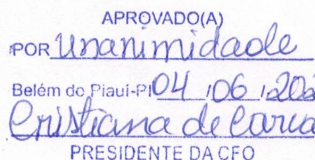 APROVADO(A)
POR Unanimidade
Belém do Piauí-PI 04 / 06 / 202
Cristiana de Carva
PRESIDENTE DA CFO